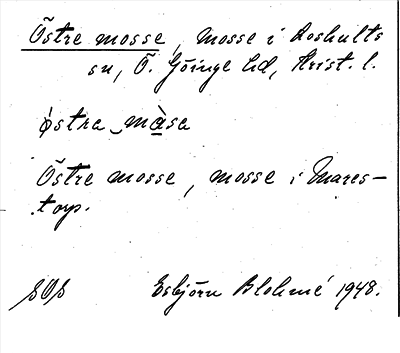 Östre mosse, mosse i Loshults
sn, Ö. Göinge hd, Krist. l.
østra màsa
Östre mosse, mosse i Mares-
torp.
SOS Esbjörn Blohmé 1948.